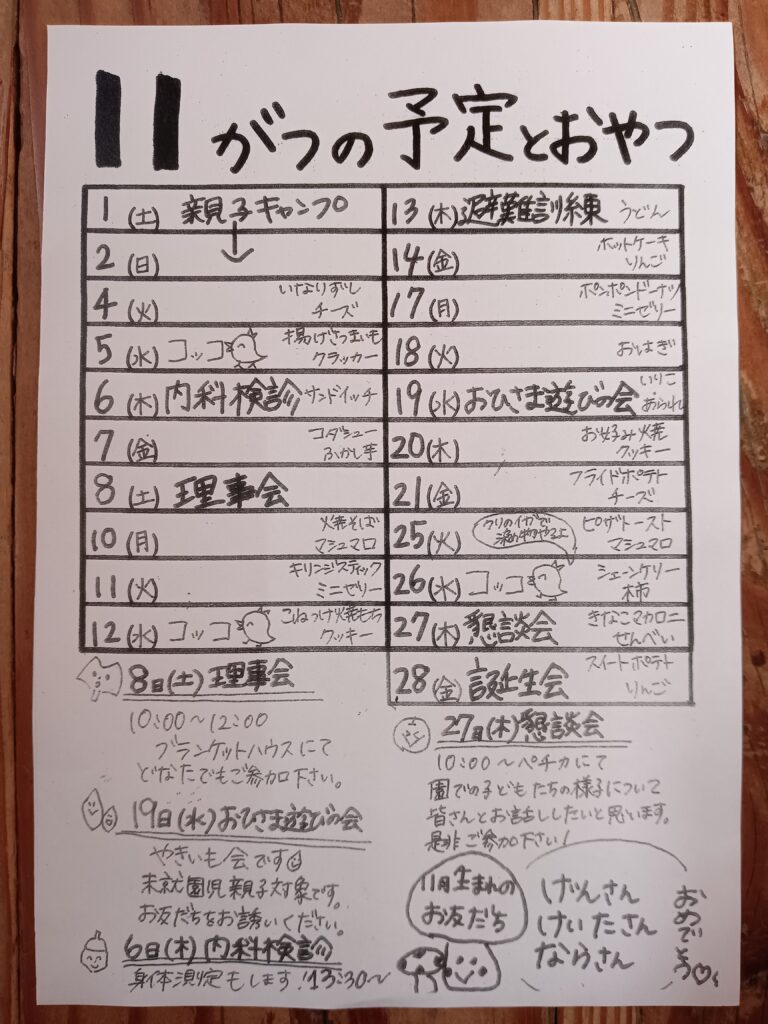 11がつの予定とおやつ
1(土) 親子キャンプ
2(日)
4(火) いなりずし
チーズ
5(水) コッコ 揚げさつまいも
クラッカー
6(木) 内科検診 サンドイッチ
7(金) コダシュー
ふかし芋
8(土) 理事会
10(月) 焼そば
マシュマロ
11(火) キリンジスティック
ミニゼリー
12(水) コッコ こねつけ焼もち
クッキー
13(木) 避難訓練 うどん
14(金) ホットケーキ
りんご
17(月) ポンポンドーナツ
ミニゼリー
18(火) おはぎ
19(水) おひさま遊びの会 いりこ
あられ
20(木) お好み焼
クッキー
21(金) フライドポテト
チーズ
25(火) クリのイガで
染め物やるよ
ピザトースト
マシュマロ
26(水) コッコ シェーンケリー
柿
27(木) 懇談会 きなこマカロニ
せんべい
28(金) 誕生会 スイートポテト
りんご
8日(土) 理事会
10:00～12:00
ブランケットハウスにて
どなたでもご参加下さい。
19日(水)おひさま遊びの会
やきいも会です
未就園児親子対象です。
お友だちをお誘いください。
6日(木)内科検診
身体測定もします!13:30～
27日(木)懇談会
10:00～ペチカにて
園での子どもたちの様子について
皆さんとお話ししたいと思います。
是非ご参加下さい!
11月生まれの
お友だち
げんさん
けいたさん
ならさん
おめでとう♡